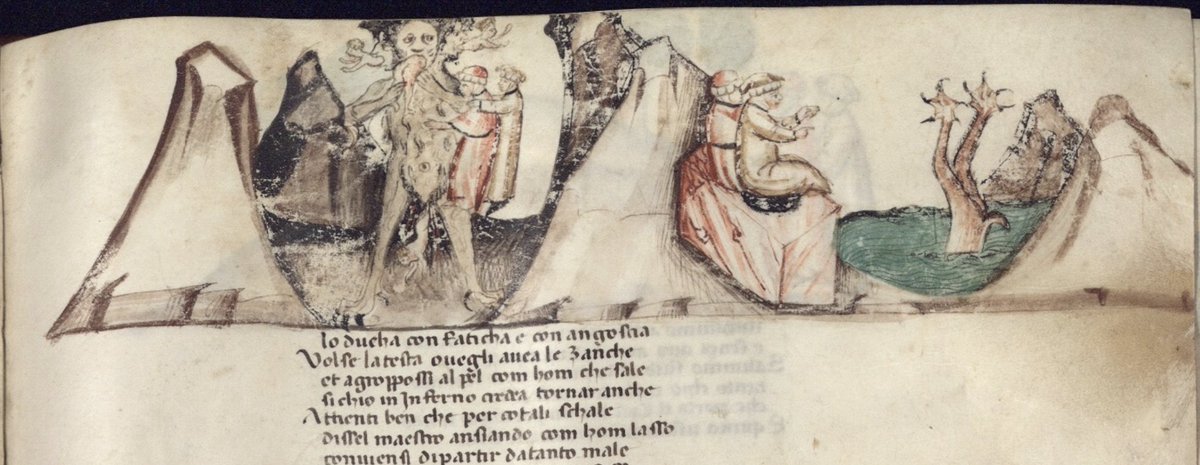 lo ducha con faticha e con angoscia
Volse la testa ovegli avea le zanche
et agroppossi al pel com hom che sale
si chio in Inferno credea tornar anche
Attienti ben che per cotali schale
dissel maestro ansiando com hom lasso
conviensi dipartir da tanto male